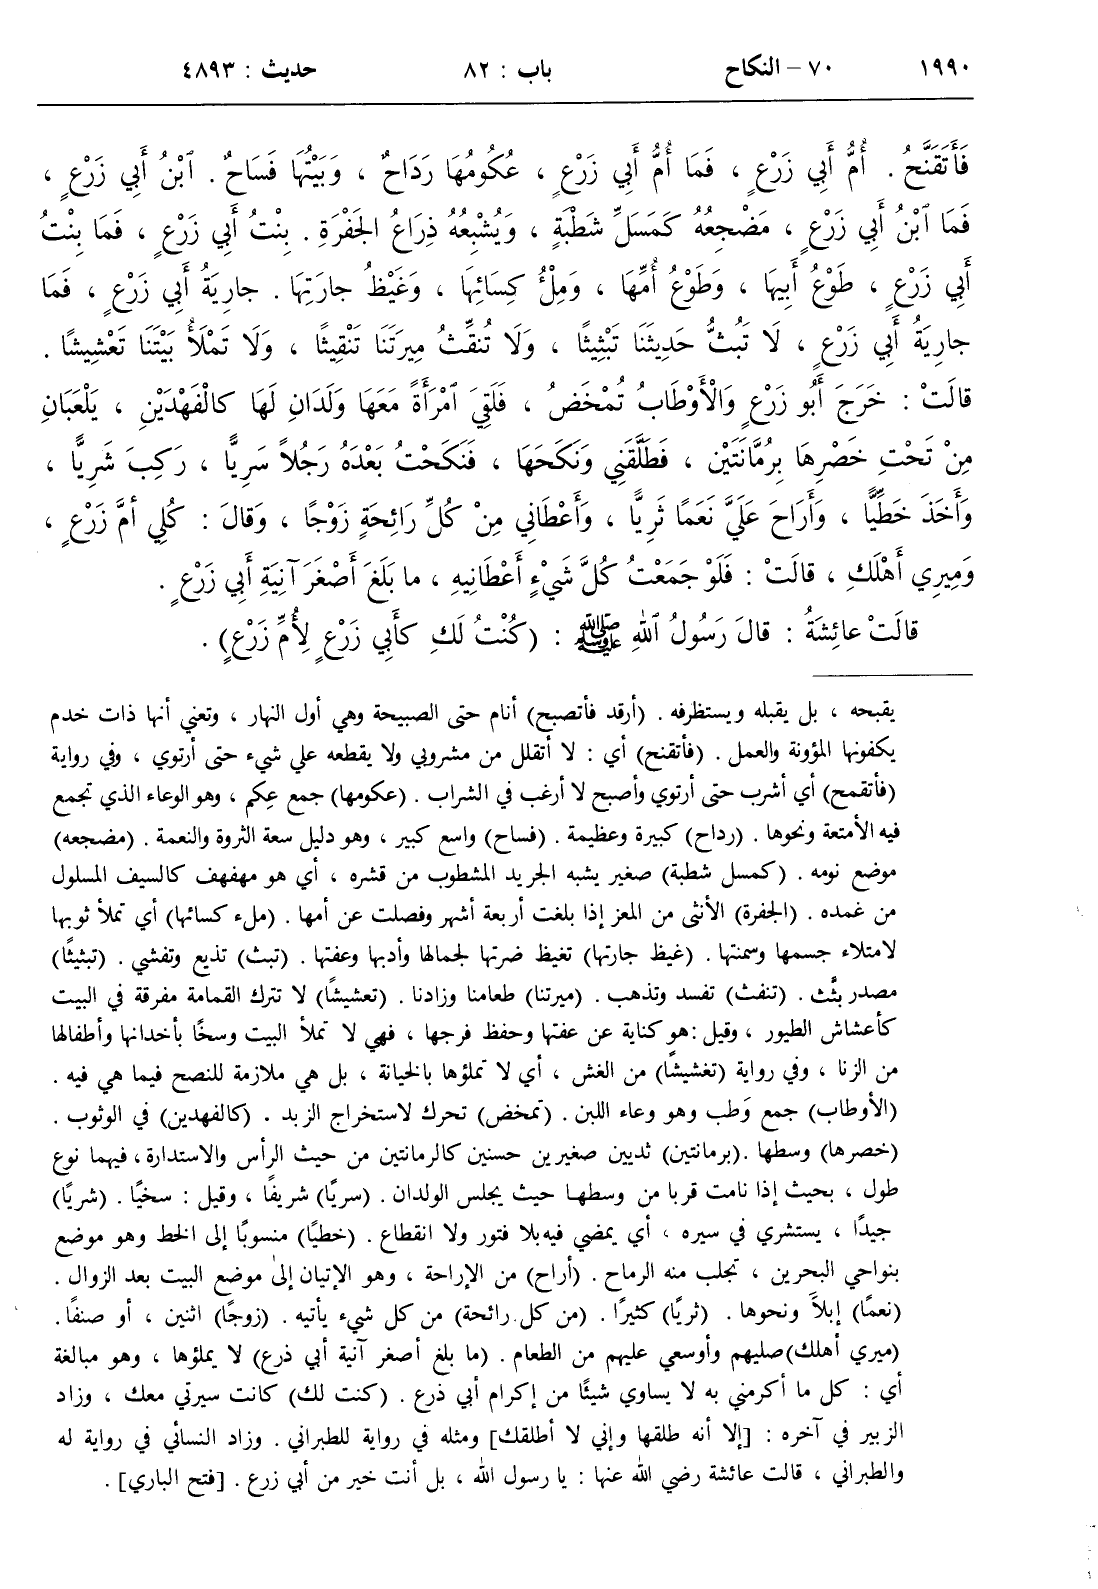 ١٩٩٠ ٧٠ – النكاح باب : ٨٢ حديث : ٤٨٩٣
فَأَتَقَنَّحُ . أُمُّ أَبِي زَرْعٍ ، فَمَا أُمُّ أَبِي زَرْعٍ ، عُكُومُهَا رَدَاحٌ ، وَبَيْتُهَا فَسَاحٌ . ٱبْنُ أَبِي زَرْعٍ ،
فَمَا ٱبْنُ أَبِي زَرْعٍ ، مَضْجِعُهُ كَمَسَلِّ شَطْبَةٍ ، وَيُشْبِعُهُ ذِرَاعُ الجَفْرَةِ . بِنْتُ أَبِي زَرْعٍ ، فَمَا بِنْتُ
أَبِي زَرْعٍ ، طَوْعُ أَبِيهَا ، وَطَوْعُ أُمِّهَا ، وَمِلْءُ كِسَائِهَا ، وَغَيْظُ جارَتِهَا . جارِيَةُ أَبِي زَرْعٍ ، فَمَا
جارِيَةُ أَبِي زَرْعٍ ، لَا تَبُثُّ حَدِيثَنَا تَبْثِيثًا ، وَلَا تُنَقِّثُ مِيرَتَنَا تَنْقِيثًا ، وَلَا تَمْلَأُ بَيْتَنَا تَعْشِيشًا .
قالَتْ : خَرَجَ أَبُو زَرْعٍ وَالْأَوْطَابُ تُمْخَضُ ، فَلَقِيَ ٱمْرَأَةً مَعَهَا وَلَدَانِ لَهَا كالْفَهْدَيْنِ ، يَلْعَبَانِ
مِنْ تَحْتِ خَصْرِهَا بِرُمَّانَتَيْنِ ، فَطَلَّقَنِي وَنَكَحَهَا ، فَنَكَحْتُ بَعْدَهُ رَجُلاً سَرِيًّا ، رَكِبَ شَرِيًّا ،
وَأَخَذَ خَطِّيًّا ، وَأَرَاحَ عَلَيَّ نَعَمًا ثَرِيًّا ، وَأَعْطَانِي مِنْ كُلِّ رَائِحَةٍ زَوْجًا ، وَقالَ : كُلِي أُمَّ زَرْعٍ ،
وَمِيرِي أَهْلَكِ ، قالَتْ : فَلَوْ جَمَعْتُ كُلَّ شَيْءٍ أَعْطَانِيهِ ، ما بَلَغَ أَصْغَرَ آنِيَةِ أَبِي زَرْعٍ .
قالَتْ عائِشَةُ : قالَ رَسُولُ ٱللهِ ﷺ : (كُنْتُ لَكِ كَأَبِي زَرْعٍ لِأُمِّ زَرْعٍ) .
يقبحه ، بل يقبله ويستظرفه . (أرقد فأتصبح) أنام حتى الصبيحة وهي أول النهار ، وتعني أنها ذات خدم
يكفونها المؤونة والعمل . (فأتقنح) أي : لا أتقلل من مشروبي ولا يقطعه علي شيء حتى أرتوي ، وفي رواية
(فأتقمح) أي أشرب حتى أرتوي وأصبح لا أرغب في الشراب . (عكومها) جمع عِكم ، وهو الوعاء الذي تجمع
فيه الأمتعة ونحوها . (رداح) كبيرة وعظيمة . (فساح) واسع كبير ، وهو دليل سعة الثروة والنعمة . (مضجعه)
موضع نومه . (كمسل شطبة) صغير يشبه الجريد المشطوب من قشره ، أي هو مهفهف كالسيف المسلول
من غمده . (الجفرة) الأنثى من المعز إذا بلغت أربعة أشهر وفصلت عن أمها . (ملء كسائها) أي تملأ ثوبها
لامتلاء جسمها وسمنتها . (غيظ جارتها) تغيظ ضرتها لجمالها وأدبها وعفتها . (تبث) تذيع وتفشي . (تبثيثًا)
مصدر بثَّث . (تنفث) تفسد وتذهب . (ميرتنا) طعامنا وزادنا . (تعشيشًا) لا تترك القمامة مفرقة في البيت
كأعشاش الطيور ، وقيل :هو كناية عن عفتها وحفظ فرجها ، فهي لا تملأ البيت وسخًا بأخدانها وأطفالها
من الزنا ، وفي رواية (تغشيشًا) من الغش ، أي لا تملؤها بالخيانة ، بل هي ملازمة للنصح فيما هي فيه .
(الأوطاب) جمع وَطب وهو وعاء اللبن . (تمخض) تحرك لاستخراج الزبد . (كالفهدين) في الوثوب .
(خصرها) وسطها .(برمانتين) ثديين صغيرين حسنين كالرمانتين من حيث الرأس والاستدارة، فيهما نوع
طول ، بحيث إذا نامت قربا من وسطها حيث يجلس الولدان . (سريًا) شريفًا ، وقيل : سخيًا . (شريًا)
جيدًا ، يستشري في سيره ، أي يمضي فيه بلا فتور ولا انقطاع . (خطيًا) منسوبًا إلى الخط وهو موضع
بنواحي البحرين ، تجلب منه الرماح . (أراح) من الإراحة ، وهو الإتيان إلىٰ موضع البيت بعد الزوال .
(نعمًا) إبلاً ونحوها . (ثريًا) كثيرًا . (من كل رائحة) من كل شيء يأتيه . (زوجًا) اثنين ، أو صنفًا.
(ميري أهلك)صليهم وأوسعي عليهم من الطعام . (ما بلغ أصغر آنية أبي ذرع) لا يملؤها ، وهو مبالغة
أي : كل ما أكرمني به لا يساوي شيئًا من إكرام أبي ذرع . (كنت لك) كانت سيرتي معك ، وزاد
الزبير في آخره : [إلا أنه طلقها وإني لا أطلقك] ومثله في رواية للطبراني . وزاد النسائي في رواية له
والطبراني ، قالت عائشة رضي الله عنها : يا رسول الله ، بل أنت خير من أبي زرع . [فتح الباري] .